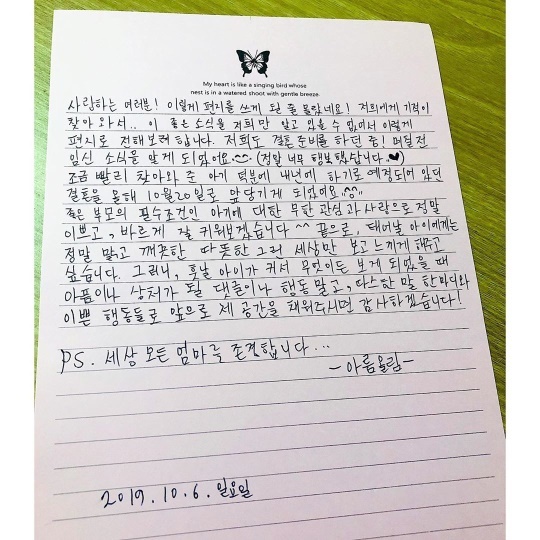 My heart is like a singing bird whose
nest is in a watered shoot with gentle breeze.
사랑하는 여러분! 이렇게 편지를 쓰게 될 줄 몰랐네요! 저희에게 기적이
찾아와서.. 이 좋은 소식을 저희만 알고 있을 수 없어서 이렇게
편지로 전해보려 합니다. 저희도 결혼준비를 하던 중! 며칠전
임신 소식을 알게 되었어요 (정말 너무 행복했답니다.♥)
조금 빨리 찾아와 준 아기 덕분에 내년에 하기로 예정되어 있던
결혼을 올해 10월 20일로 앞당기게 되었어요
좋은 부모의 필수조건인 아기에 대한 무한 관심과 사랑으로 정말
이쁘고, 바르게 잘 키워보겠습니다 ^^ 끝으로, 태어날 아이에게는
정말 맑고 깨끗한 따뜻한 그런 세상만 보고 느끼게 해주고
싶습니다. 그러니, 훗날 아이가 커서 무엇이든 보게 되었을 때
아픔이나 상처가 될 댓글이나 행동 말고, 다스한 말 한마디와
이쁜 행동들로 앞으로 제 공간을 채워주시면 감사하겠습니다!
PS. 세상 모든 엄마를 존경합니다...
-아름올림-
2019. 10. 6. 일요일